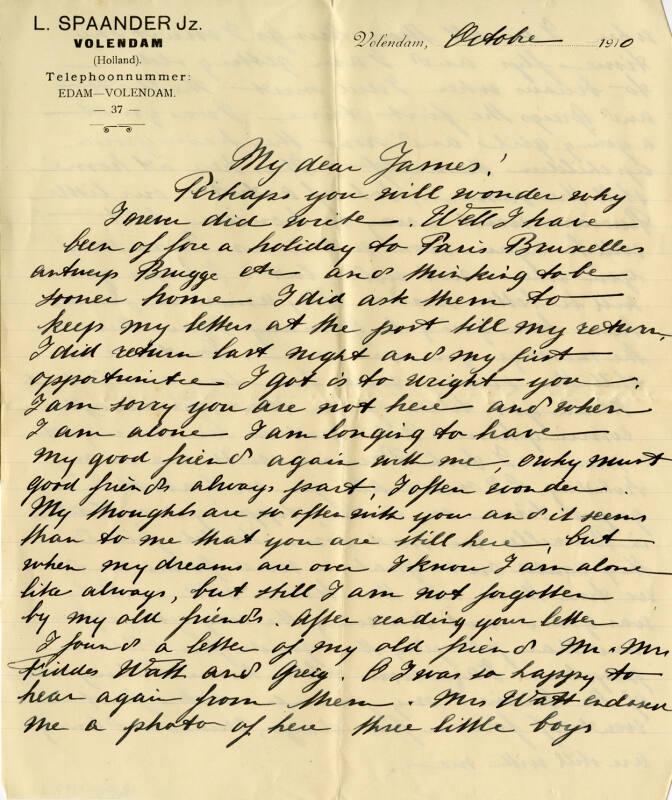 L. SPAANDER Jz.
VOLENDAM
(Holland).
Telephoonnummer:
EDAM—VOLENDAM.
— 37 —
Volendam, Octobre 1910
My dear James!
Perhaps you will wonder why
I never did write. Well I have
been of fore a holiday to Paris Bruxelles
antwerp Brugge etc and thinking to be
sooner home I did ask them to
keep my letters at the post till my return,
I did return last night and my first
opportunitee I got is to wright you.
I am sorry you are not here and when
I am alone I am longing to have
my good friend again with me, o why must
good friends always part, I often wonder.
My thoughts are so often with you and it seems
than to me that you are still here, but
when my dreams are over I know I am alone
like always, but still I am not forgotten
by my old friends. After reading your letter
I found a letter of my old friend Mr & Mrs
Fiddes Watt and Greig. O I was so happy to
hear again from them. Mrs Watt
me a photo of here three little boys